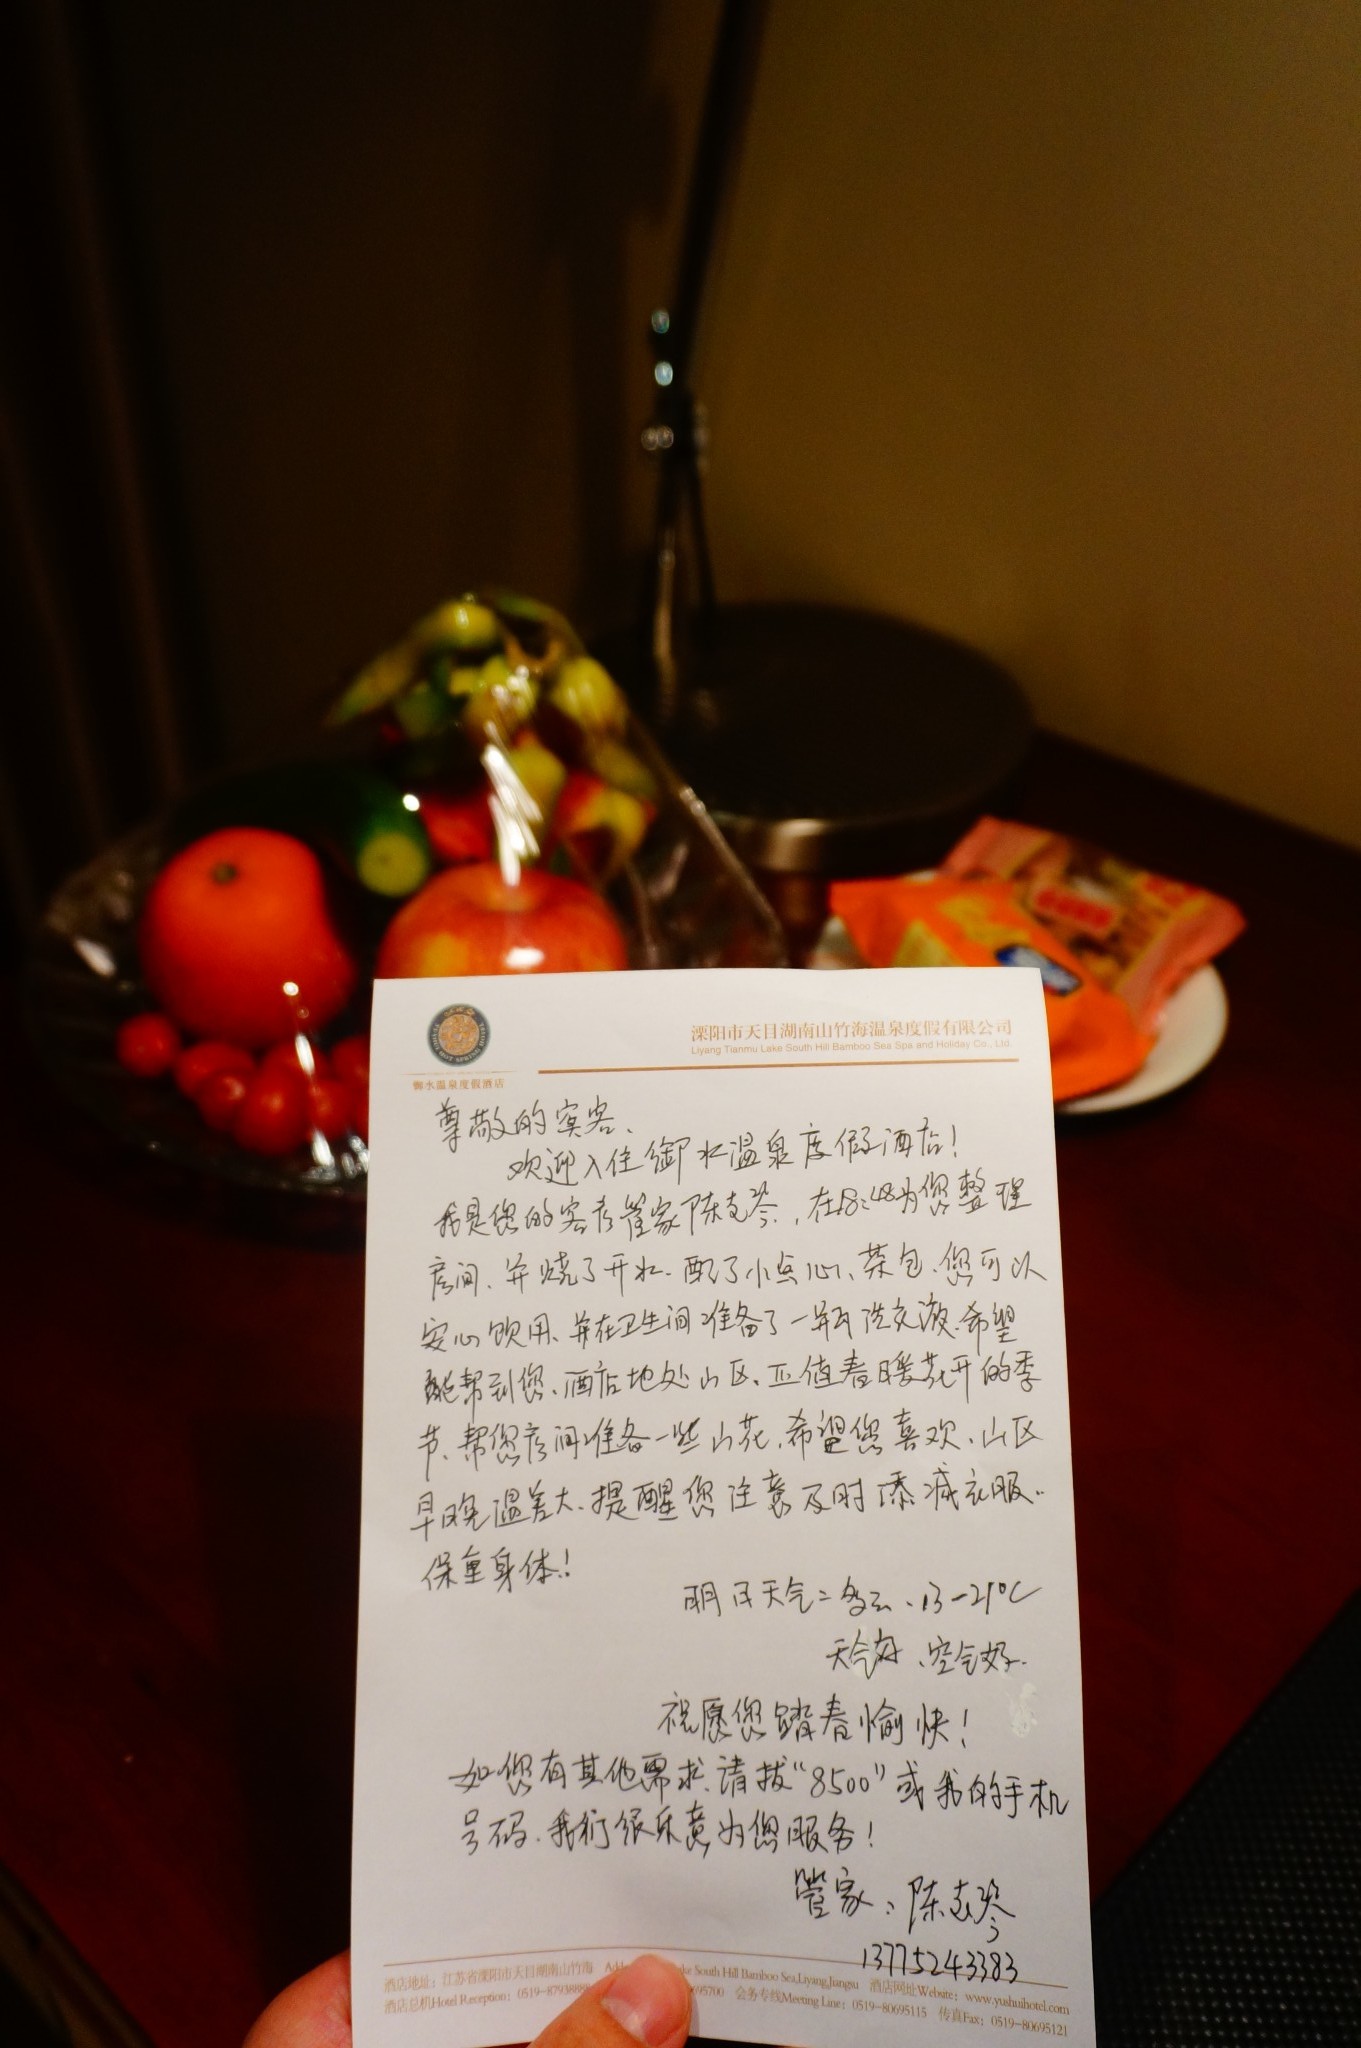 溧阳市天目湖南山竹海温泉度假有限公司
Liyang Tianmu Lake South Hill Bamboo Sea Spa and Holiday Co., Ltd.
御水温泉度假酒店
尊敬的宾客、
欢迎入住御水温泉度假酒店！
我是您的客房管家陈志琴，在18:48为您整理
房间、并烧了开水、配了小点心、茶包、您可以
安心饮用、并在卫生间准备了一瓶洗衣液、希望
能帮到您、酒店地处山区、正值春暖花开的季
节、帮您房间准备一些山花，希望您喜欢、山区
早晚温差大、提醒您注意及时添减衣服、
保重身体！
明日天气：多云、13-21℃
天气好、空气好、
祝愿您踏春愉快！
如您有其他需求、请拔“8500”或我的手机
号码、我们很乐意为您服务！
管家：陈志琴
13775243383
酒店地址：江苏省溧阳市天目湖南山竹海 Lake South Hill Bamboo Sea,Liyang Jiangsu 酒店网址Website：www.yushuihotel.com
酒店总机Hotel Reception：0519-879388 95700 会务专线Meeting Line：0519-80695115 传真Fax：0519-80695121